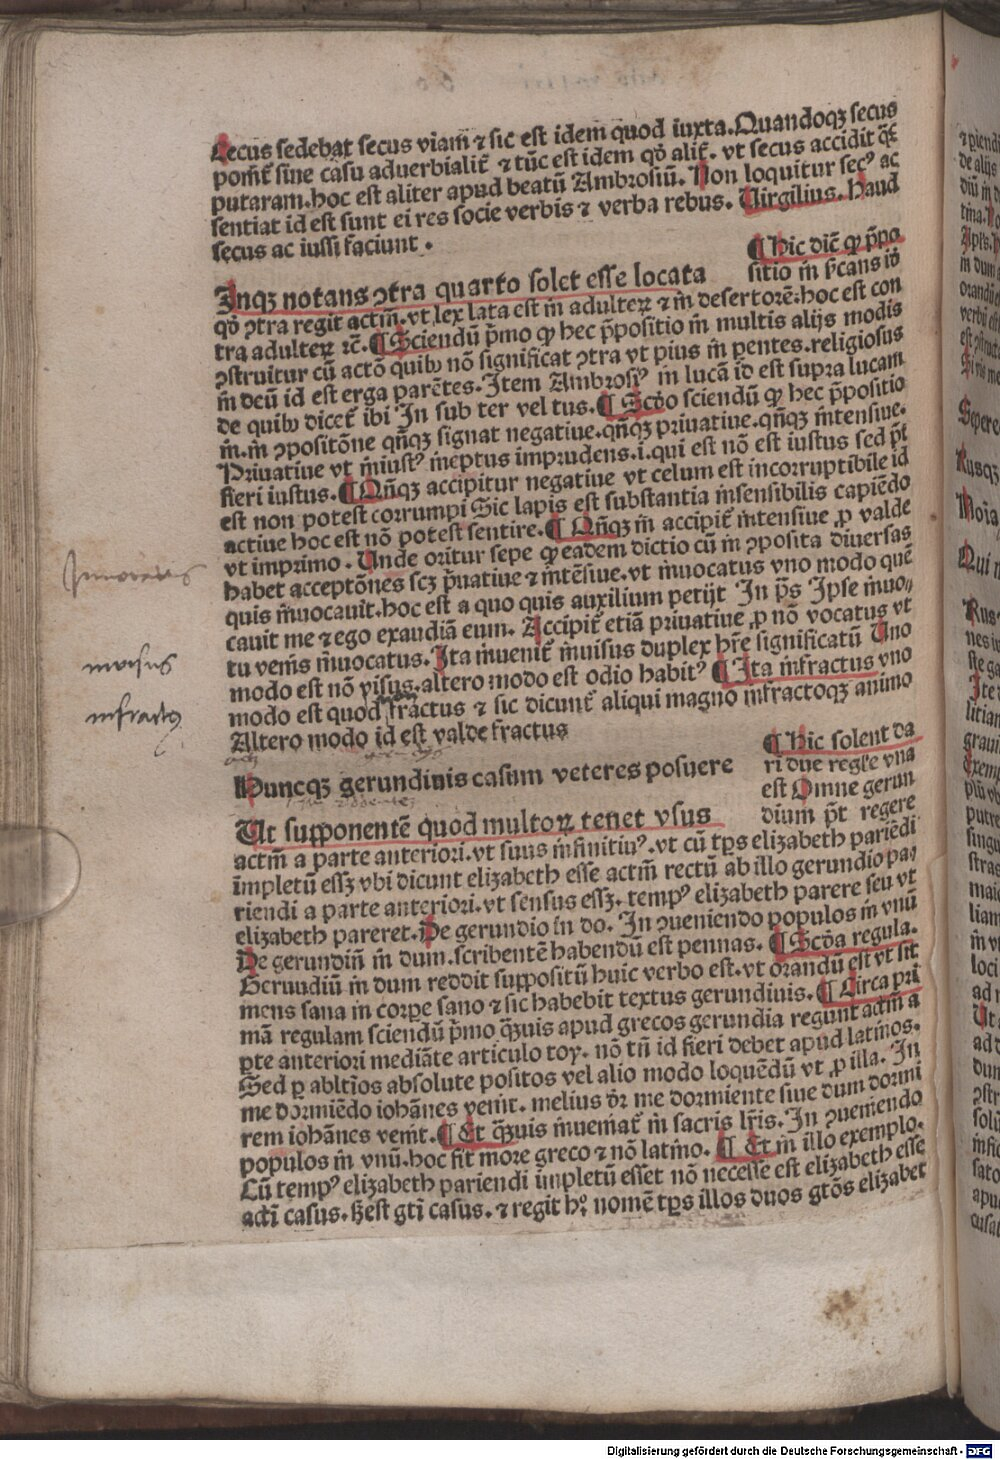 Cecus sedebat secus viam ⁊ sic est idem quod iuxta. Quandoqꝫ secus
pomt̄ sine casu aduerbialit̄ ⁊ tūc est idem qḋ alit̄. vt secus accidit q̄ȝ
putaram. hoc est aliter apud beatū Ambrosiū. Non loquitur secꝰ ac
sentiat id est sunt ei res socie verbis ⁊ verba rebus. Virgilius. Haud
secus ac iussi faciunt.
¶ Hic dic̄ ꝙ p̄po
Inqꝫ notans ꝯtra quarto solet esse locata
sitio in p̄cans iḋ
qḋ ꝯtra regit actm̄. vt lex lata est in adulteꝝ ⁊ in desertorē. hoc est con
tra adulteꝝ ⁊c̄. ¶ Sciendū p̄mo ꝙ hec p̄positio in multis alijs modis
ꝯstruitur cū actō quibꝰ nō significat ꝯtra vt pius in pentes. religiosus
in deū id est erga parētes. Item Ambrosiꝰ in lucā id est supra lucam
de quibꝰ dicet̄ ibi In sub ter vel tus. ¶ Scḋo sciendū ꝙ hec p̄positio
in. in ꝯpositōne qn̄qꝫ signat negatiue. qn̄qꝫ priuatiue. qn̄qꝫ intensiue.
Priuatiue vt iniustꝰ ineptus imprudens. i. qui est nō est iustus sed p̄t
fieri iustus. ¶ Qn̄qꝫ accipitur negatiue vt celum est incorruptibile id
est non potest corrumpi Sic lapis est substantia insensibilis capiēdo
actiue hoc est nō potest sentire. ¶ Qn̄qꝫ in accipit̄ intensiue ꝓ valde
vt imprimo. Unde oritur sepe ꝙ eadem dictio cū in ꝯposita diuersas
habet acceptōnes scꝫ p̄uatiue ⁊ intēsiue. vt inuocatus vno modo quē
quis inuocauit. hoc est a quo quis auxilium petijt In p̄s Ipse inuo⸗
cauit me ⁊ ego exaudiā eum. Accipit̄ etiā priuatiue ꝓ nō vocatus vt
tu venis inuocatus. Ita inuenit̄ inuisus duplex hr̄e significatū Uno
modo est nō visus. altero modo est odio habitꝰ ¶ Ita infractus vno
modo est quod fractus ⁊ sic dicunt̄ aliqui magno infractoqꝫ animo
Altero modo id est valde fractus
inuocatus
inuisus
infractꝰ
¶ Hic solent da
Nuncqꝫ gerundinis casum veteres posuere
ri due regle vna
est Omne gerun
Ut supponentē quod multoꝝ tenet vsus
dium p̄t regere
actm̄ a parte anteriori. vt suus infinitiuꝰ. vt cū tp̄s elizabeth pariēdi
impletū essꝫ vbi dicunt elizabeth esse actm̄ rectū ab illo gerundio pa⸗
riendi a parte anteriori. vt sensus essꝫ. tempꝰ elizabeth parere seu vt
elizabeth pareret. De gerundio in do. In ꝯueniendo populos in vnū
De gerundiū in dum. scribentē habendū est pennas. ¶ Scḋa regula.
Geruudiū in dum reddit suppositū huic verbo est. vt orandū est vt sit
mens sana in corpe sano ⁊ sic habebit textus gerundinis. ¶ Circa pri
mā regulam sciendū p̄mo qꝫuis apud grecos gerundia regunt actm̄ a
ꝑte anteriori mediāte articulo toy. nō tn̄ id fieri debet apud latinos.
Sed ꝑ abltīos absolute positos vel alio modo loquēdū vt ꝓ illa. In
me dormiēdo iohānes venit. melius ḋr me dormiente siue dum dormi
rem iohānes venit. ¶ Et qꝫuis inueniat̄ in sacris lr̄is. In ꝯueniendo
populos in vnū. hoc fit more greco ⁊ nō latino. ¶ Et in illo exemplo.
Cū tempꝰ elizabeth pariendi impletū esset nō necesse est elizabeth esse
acti casus. sꝫ est gtī casus. ⁊ regit hͦ nomē tp̄s illos duos gtōs elizabet
Digitalisierung gefördert durch die Deutsche Forschungsgemeinschaft - DFG